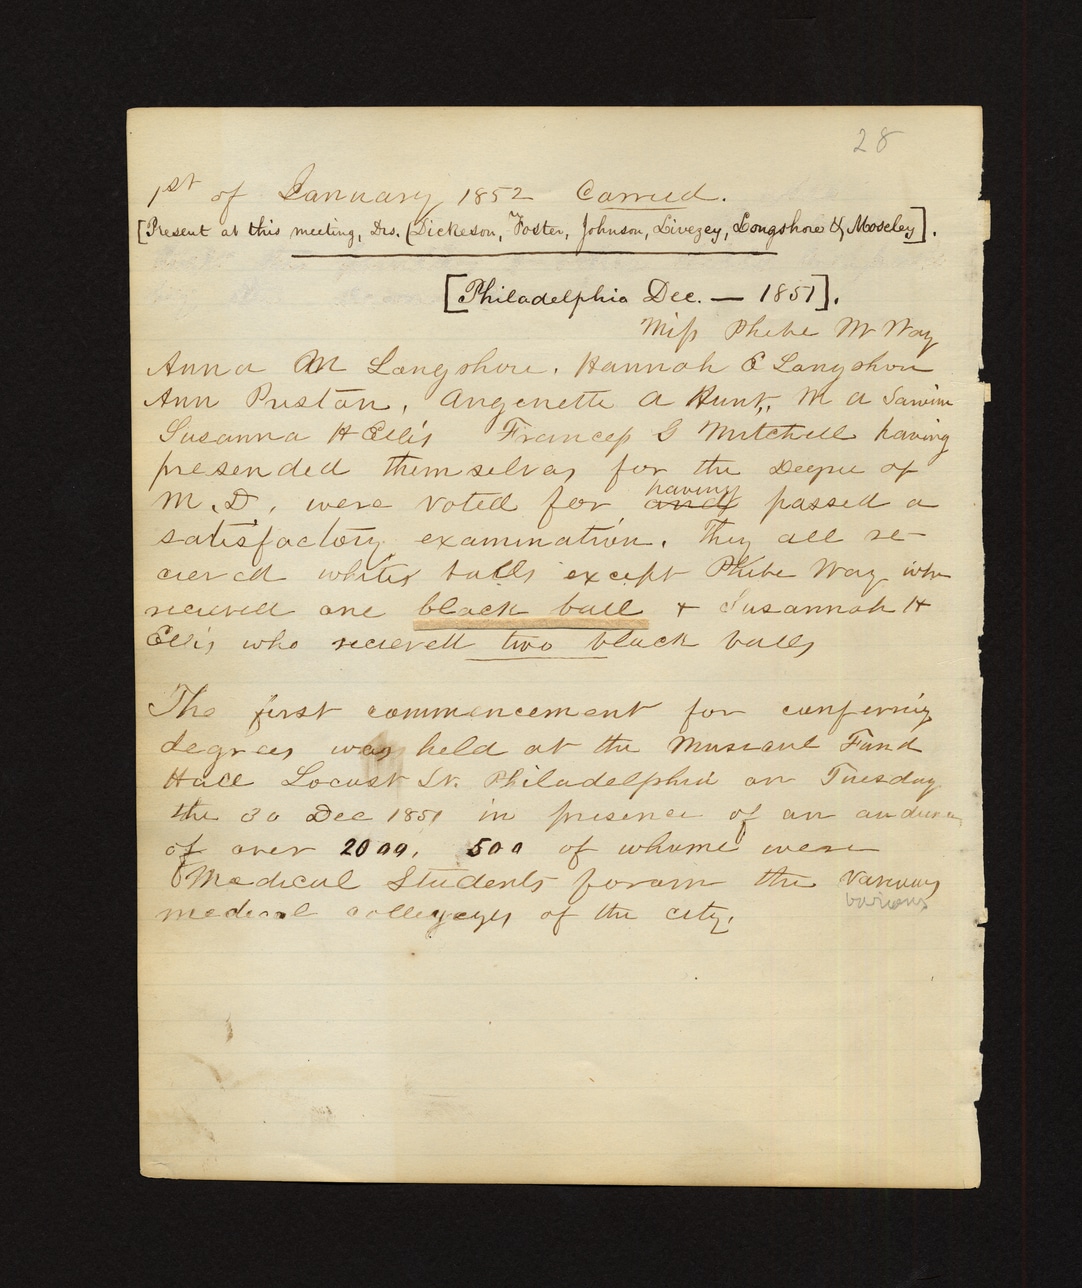 28
1st of January 1852 Carried.
[Present at this meeting, Drs. (Dickeson, Foster, Johnson, Livezey, Longshore & Moseley].
[Philadelphia Dec. — 1851].
Miss Phebe M Way
Anna M Longshore, Hannah E Longshore
Ann Preston, Angenette A Hunt, M A
Susanna H Ellis Francess G Mitchell having
presended themselves for the Degree of
M.D, were voted for and having passed a
satisfactory examination. They all re-
cieved white balls except Phebe Way who
recieved one black ball + Susannah H
Ellis who recieved two black balls
The first commencement for confering
degrees was held at the Musical Fund
Hall Locust St. Philadelphia on Tuesday
the 30 Dec 1851 in presence of an audience
of over 2000, 500 of whome were
Medical Students foram the various
various
medical collegeges of the city.